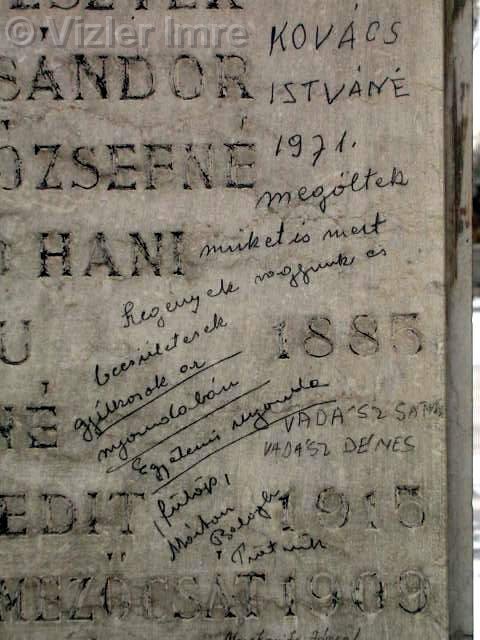 © Vizler Imre
ESZTER
KOVÁCS
SÁNDOR
ISTVÁNÉ
1971.
ÓZSEFNÉ
megöltek
HANI
minket is mert
szegények vagyunk és
becsületesek
U 1885
gyilkosok az
nyomdában
NÉ
Egyetemi nyomda
VADÁSZ
VADÁSZ DÉNES
EDIT 1915
Fülöp,
Márton
Balogh
MEZŐCSÁT 1909